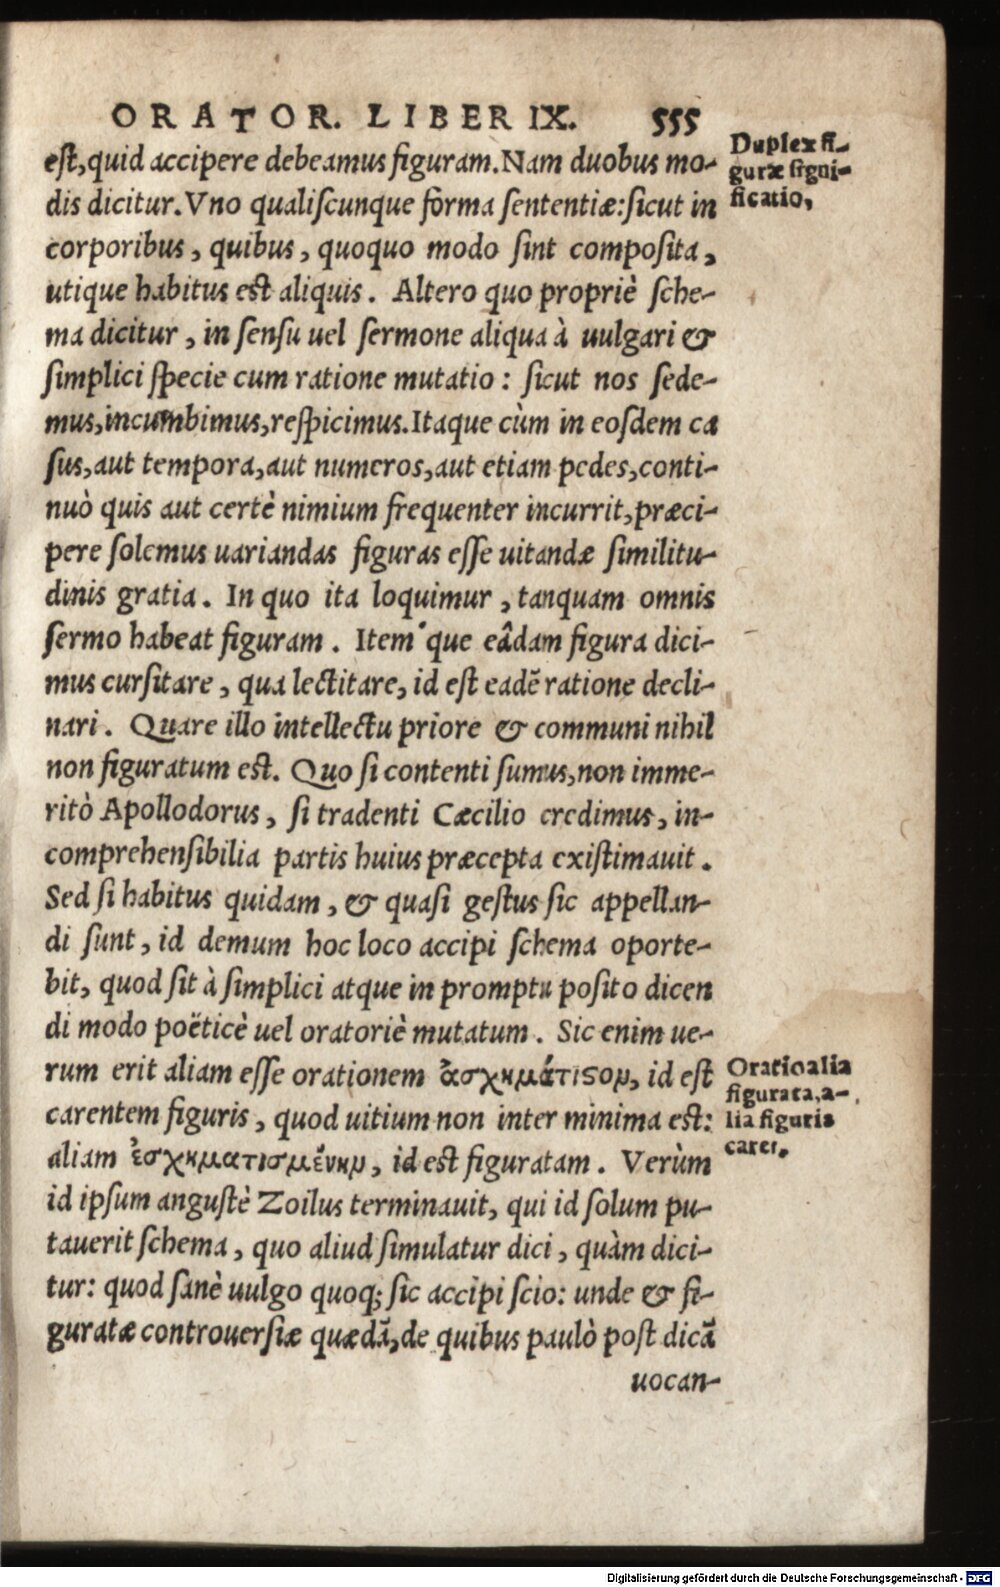 ORATOR. LIBER IX. 555
est, quid accipere debeamus figuram. Nam duobus mo-
dis dicitur. Vno qualiscunque forma sententiæ: sicut in
corporibus, quibus, quoquo modo sint composita,
utique habitus est aliquis. Altero quo propriè sche-
ma dicitur, in sensu uel sermone aliqua à uulgari &
simplici specie cum ratione mutatio: sicut nos sede-
mus, incumbimus, respicimus. Itaque cùm in eosdem ca
sus, aut tempora, aut numeros, aut etiam pedes, conti-
nuò quis aut certè nimium frequenter incurrit, præci-
pere solemus uariandas figuras esse uitandæ similitu-
dinis gratia. In quo ita loquimur, tanquam omnis
sermo habeat figuram. Item'que eâdam figura dici-
mus cursitare, qua lectitare, id est eadē ratione decli-
nari. Quare illo intellectu priore & communi nihil
non figuratum est. Quo si contenti sumus, non imme-
ritò Apollodorus, si tradenti Cæcilio credimus, in-
comprehensibilia partis huius præcepta existimauit.
Sed si habitus quidam, & quasi gestus sic appellan-
di sunt, id demum hoc loco accipi schema oporte-
bit, quod sit à simplici atque in promptu posito dicen
di modo poëticè uel oratoriè mutatum. Sic enim ue-
rum erit aliam esse orationem ἀσχημάτιςον, id est
carentem figuris, quod uitium non inter minima est:
aliam ἐσχηματισμένην, id est figuratam. Verùm
id ipsum angustè Zoilus terminauit, qui id solum pu-
tauerit schema, quo aliud simulatur dici, quàm dici-
tur: quod sanè uulgo quoq; sic accipi scio: unde & fi-
guratæ controuersiæ quædā, de quibus paulò post dicā
uocan-
Duplex fi-
guræ signi-
ficatio,
Oratio alia
figurata, a-
lia figuris
caret.
Digitalisierung gefördert durch die Deutsche Forschungsgemeinschaft - DFG